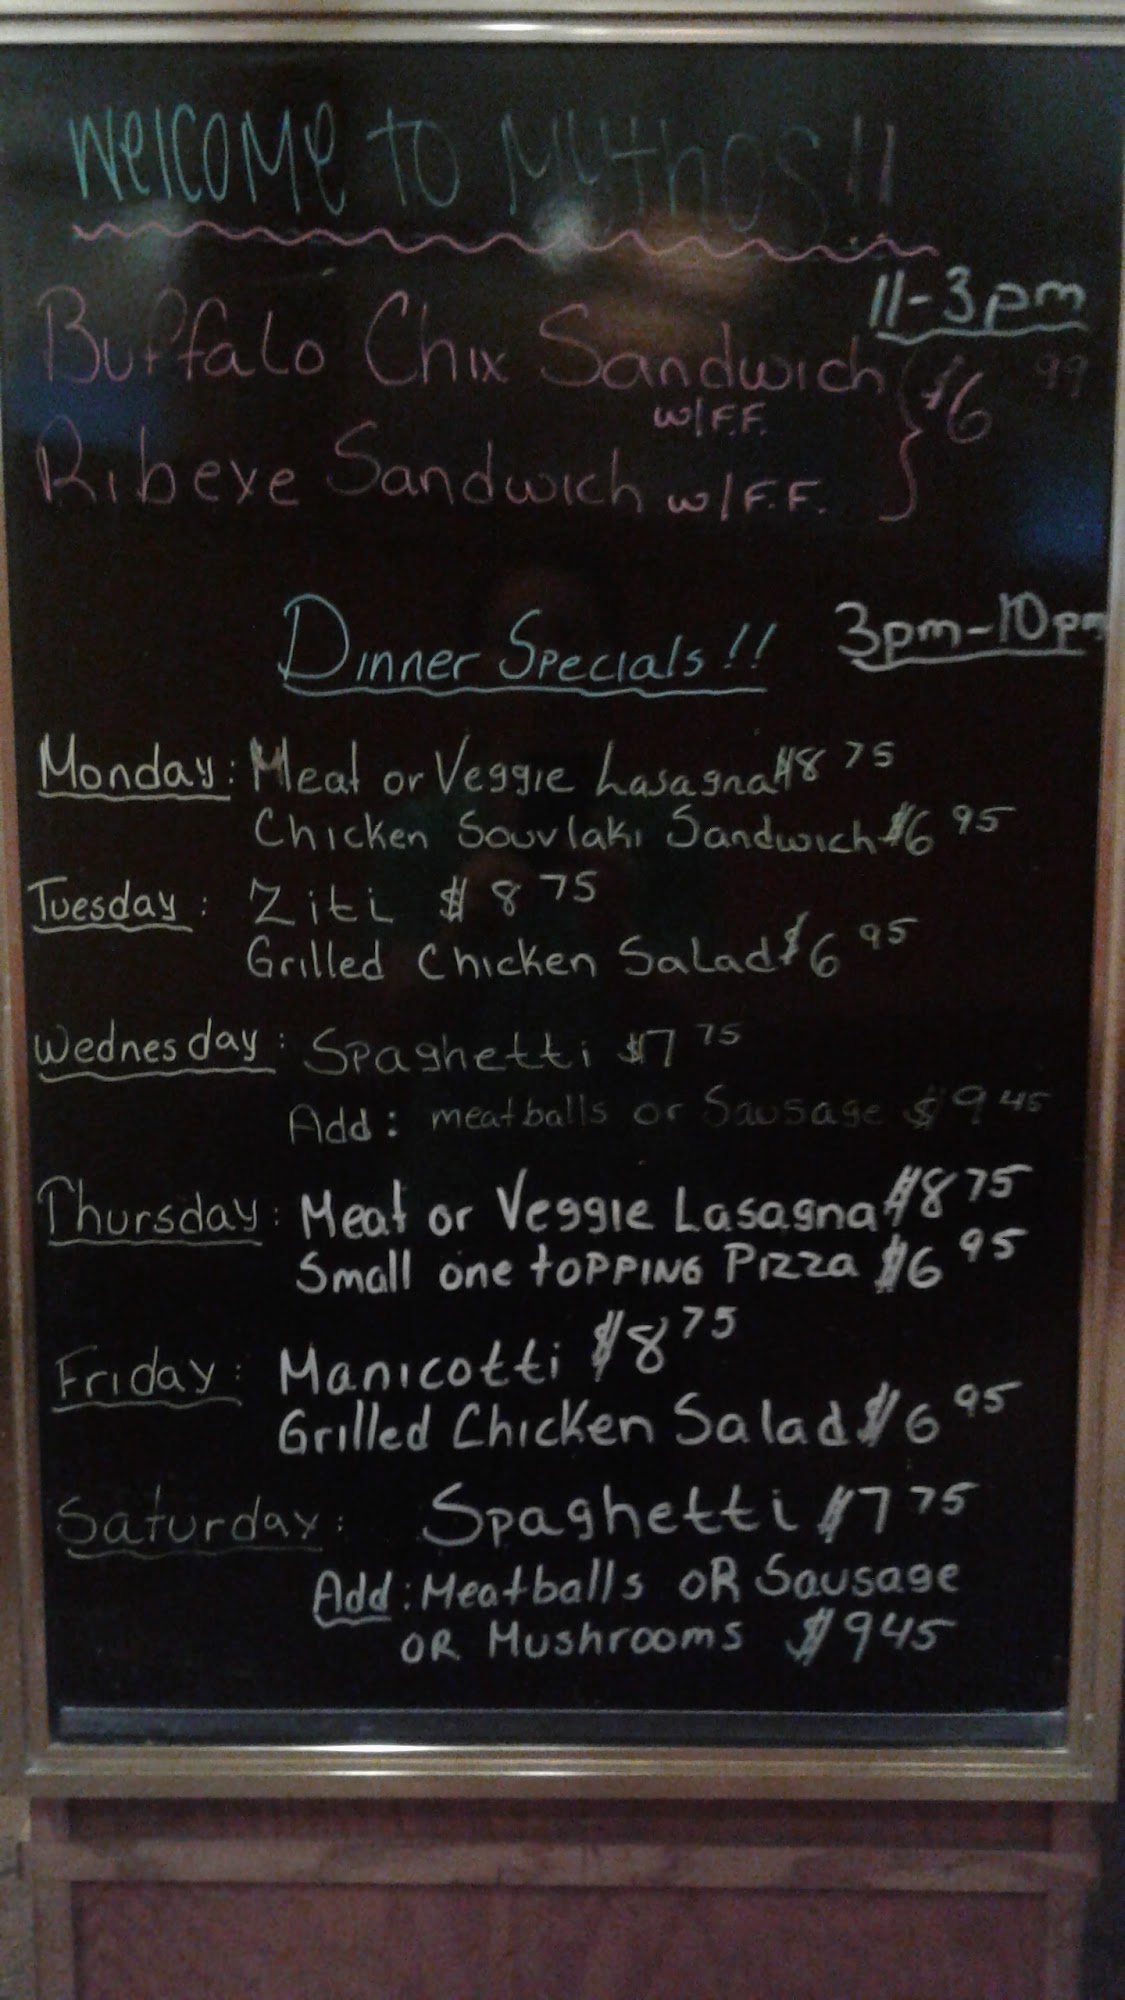 Welcome to Mythos!!
11-3pm
Buffalo Chix Sandwich
w/F.F.
$6 99
Ribeye Sandwich w/F.F.
Dinner Specials!! 3pm-10pm
Monday: Meat or Veggie Lasagna $8 75
Chicken Souvlaki Sandwich $6 95
Tuesday: Ziti $8 75
Grilled Chicken Salad $6 95
Wednesday: Spaghetti $7 75
Add: meatballs or Sausage $9 45
Thursday: Meat or Veggie Lasagna $8 75
Small one topping Pizza $6 95
Friday: Manicotti $8 75
Grilled Chicken Salad $6 95
Saturday: Spaghetti $7 75
Add: Meatballs OR Sausage
OR Mushrooms $9 45